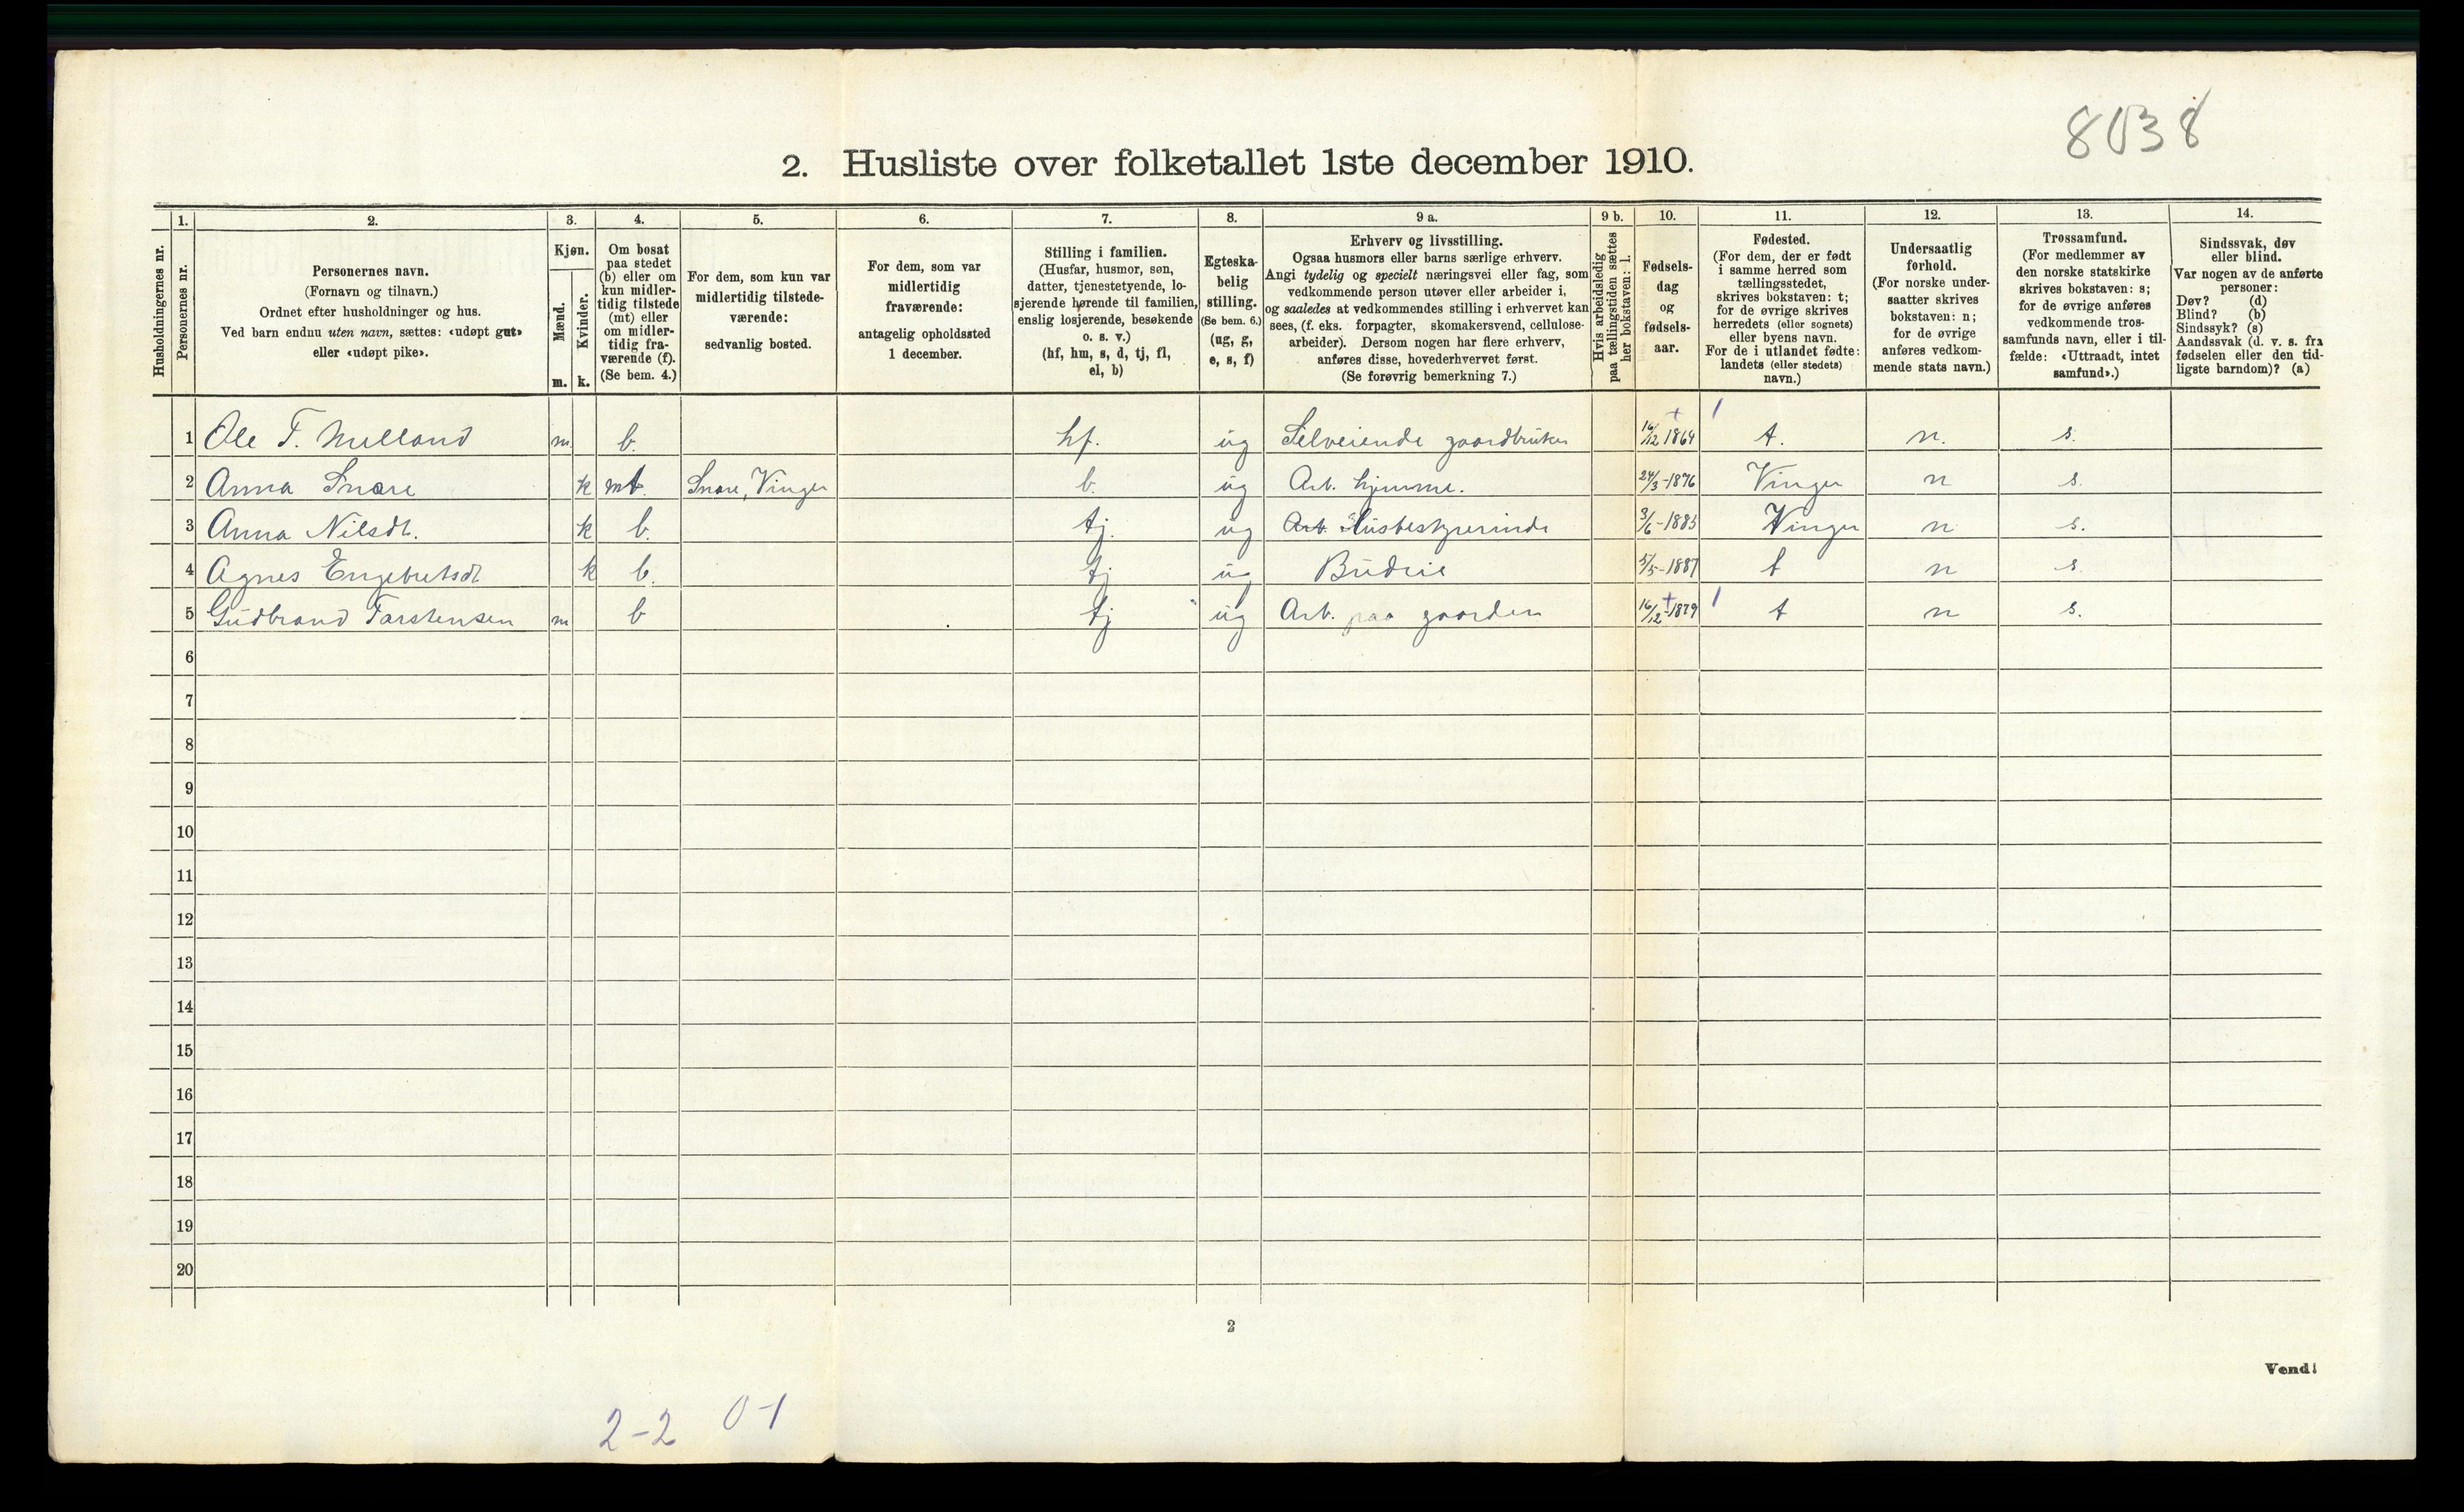 8038
2. Husliste over folketallet 1ste december 1910.
Husholdningernes nr.
1.
Personernes nr.
2.
Personernes navn.
(Fornavn og tilnavn.)
Ordnet efter husholdninger og hus.
Ved barn endnu uten navn, sættes: «udøpt gut»
eller «udøpt pike».
3.
Kjøn.
Mænd.
Kvinder.
m. k.
4.
Om bosat
paa stedet
(b) eller om
kun midler-
tidig tilstede
(mt) eller
om midler-
tidig fra-
værende (f).
(Se bem. 4.)
5.
For dem, som kun var
midlertidig tilstede-
værende:
sedvanlig bosted.
6.
For dem, som var
midlertidig
fraværende:
antagelig opholdssted
1 december.
7.
Stilling i familien.
(Husfar, husmor, søn,
datter, tjenestetyende, lo-
sjerende hørende til familien,
enslig losjerende, besøkende
o. s. v.)
(hf, hm, s, d, tj, fl,
el, b)
8.
Egteska-
belig
stilling.
(Se bem. 6.)
(ug, g,
e, s, f)
9 a.
Erhverv og livsstilling.
Ogsaa husmors eller barns særlige erhverv.
Angi tydelig og specielt næringsvei eller fag, som
vedkommende person utøver eller arbeider i,
og saaledes at vedkommendes stilling i erhvervet kan
sees, (f. eks. forpagter, skomakersvend, cellulose-
arbeider). Dersom nogen har flere erhverv,
anføres disse, hovederhvervet først.
(Se forøvrig bemerkning 7.)
9 b.
Hvis arbeidsledig
paa tællingstiden sættes
her bokstaven: l.
10.
Fødsels-
dag
og
fødsels-
aar.
11.
Fødested.
(For dem, der er født
i samme herred som
tællingsstedet,
skrives bokstaven: t;
for de øvrige skrives
herredets (eller sognets)
eller byens navn.
For de i utlandet fødte:
landets (eller stedets)
navn.)
12.
Undersaatlig
forhold.
(For norske under-
saatter skrives
bokstaven: n;
for de øvrige
anføres vedkom-
mende stats navn.)
13.
Trossamfund.
(For medlemmer av
den norske statskirke
skrives bokstaven: s;
for de øvrige anføres
vedkommende tros-
samfunds navn, eller i til-
fælde: «Uttraadt, intet
samfund».)
14.
Sindssvak, døv
eller blind.
Var nogen av de anførte
personer:
Døv? (d)
Blind? (b)
Sindssyk? (s)
Aandssvak (d. v. s. fra
fødselen eller den tid-
ligste barndom)? (a)
1 Ole T. Melland m b. hf. ug Selveiende gaardbruker 16/12 1864 t. n. s.
2 Anna Snare k mt. Snare, Vinger b. ug Arb. hjemme. 24/3-1876 Vinger n s.
3 Anna Nilsdt. k b. tj. ug Art. Husbestyrerinde 3/6-1885 Vinger n s.
4 Agnes Engebretsdt k b. tj ug Budeie 5/5-1887 t n s
5 Gudbrand Tarstensen m b tj ug Arb. paa gaarden 16/12-1879 t n s.
6
7
8
9
10
11
12
13
14
15
16
17
18
19
20
2
Vend!
2-2 0-1